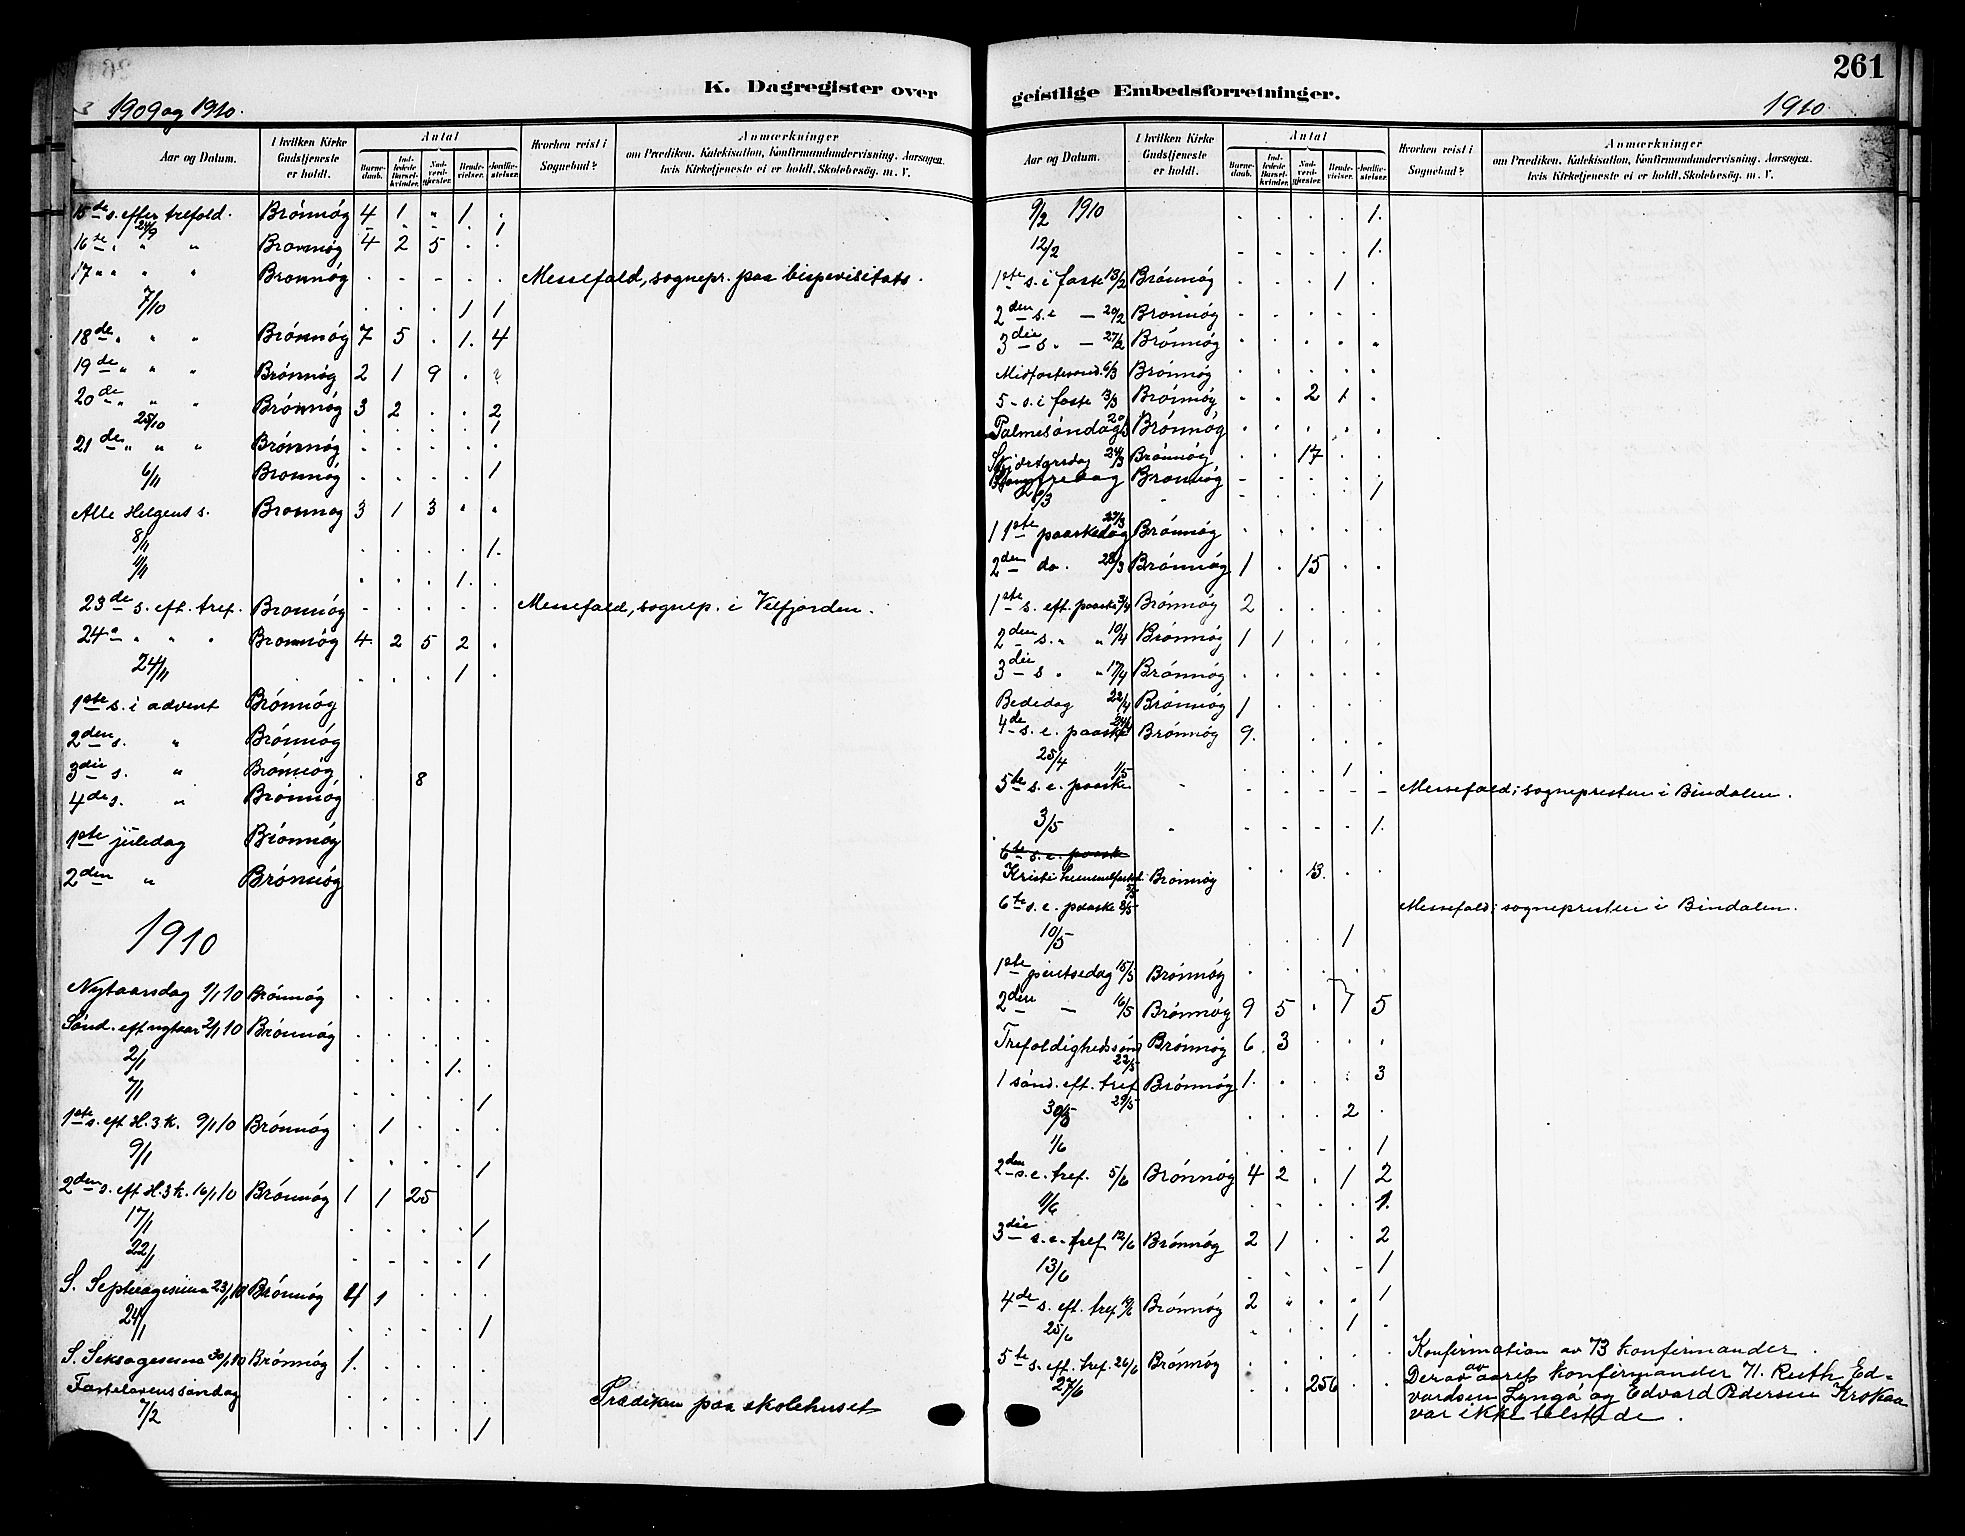 1909 og 1910.
K. Dagregister over
Aar og Datum.
I hvilken Kirke Gudstjeneste er holdt.
Antal
Barnedaab.
Indledede Barselkvinder.
Nadverdgjester.
Brudevielser.
Jordfæstelser.
Hvorhen reist i Sognebud?
Anmærkninger
om Prædiken, Katekisation, Konfirmandundervisning, Aarsagen,
hvis Kirketjeneste ei er holdt, Skolebesøg, m. V.
15de s. efter trefold. Brónnóg 4 1 " 1 .
24/9 . . . . 1
16de " " " Bronnóg 4 2 5 . .
17 " " " " Bronnóg . . . . . Messefald, sognepr. paa bispevisitats.
7/10 . . . 1 1
18de " " " Brónnóg 7 5 . 1. 4
19de " " " Brónnóg 2 1 9 .
20de " " " Brónnóg 3 2 . . 2
25/10 . . . . 1
21de " " " Brónnóg . . . . .
6/11 Bronnóg . . . . 1
Alle Helgens s. Bronnog 3 1 3 " "
8/11 . . . . 1.
. . . 1. .
23de s. eft. tref. Bronnóg - . . . . Messefald, sognep. i Velfjorden.
24de " " " Bronnóg 4 2 5 2 .
24/11 . . . 1 .
1ste s. i advent Brónnóg
2den s. " Brónnóg
3die s. " Brónnóg . 8
4de s. " Brónnóg
1ste juledag Brónnóg
2den " Brónnóg
1910
Nytaarsdag 1/1 10 Brónnóg . . . . .
Sónd. eft nytaar 2/1 10 Brónnóg . . . . .
2/1 . . . 1. .
7/1 . . . . 1
1ste s. eft H. 3 k. 9/1 10 Brónnóg . 1 . . .
9/1 . . . . 1
2den s. eft H. 3 k. 16/1 10 Brónnóg 1 1 25
17/1 . . . . 1
22/1 . . . . 1
S. Septuagesima 23/1 10 Brónnóg 4 1 . . .
24/1 . . . . 1
S. Seksagesima 30/1 10 Brónnóg 1. . . . .
Fastelavenssóndag . . . . . Prædiken paa skolehuset
7/2 . . . . 1
261
geistlige Embedsforretninger.
1910
Aar og Datum.
I hvilken Kirke Gudstjeneste er holdt.
Antal
Barnedaab.
Indledede Barselkvinder.
Nadverdgjester.
Brudevielser.
Jordfæstelser.
Hvorhen reist i Sognebud?
Anmærkninger
om Prædiken, Katekisation, Konfirmandundervisning, Aarsagen,
hvis Kirketjeneste ei er holdt, Skolebesøg, m. V.
9/2 1910 . . . . 1.
12/2 . . . . 1.
1ste s. i faste 13/2 Brónnóg . . . 1 .
2den s. i — 20/2 Brónnóg . . . . .
3die s. " — 27/2 Brónnóg . . . . .
6/3 Brónnóg . . . . .
5- s. i faste 13/3 Brónnóg . . 2 1 .
Palmesóndag 20/3 Brónnóg . . . . .
Skjærtorsdag 24/3 Brónnóg . . 17 . .
Langfredag Bronnóg . . . . .
/3 . . . . 1
1ste paaskedag 27/3 Brónnóg . . . . .
2den do. 28/3 Brónnóg 1 . 15 . .
1ste s. eft. paaske 3/4 Brónnóg 2 . . . .
2den s. " " 10/4 Brónnóg 1 1 . . .
3die s " " 17/4 Brónnóg . . . . .
Bededag 22/4 Brónnóg 1 . . . .
4de s. e. paaske 24/4 Brónnóg 9. . . . .
25/4 . . . 1 .
5te s. e. paaske 1/5 " . . . - - Messefald; sognepresten i Bindalen.
3/5 " - - - - 1.
6te s. e. paaske
Kristi himmelfartsd. 5/5 Brónnóg . . 13. . .
6te s. e. paaske 8/5 Messefald; sognepresten i Bindalen.
10/5 . . . 1
1ste pintsedag 15/5 Brónnóg . . . . .
2den — 16/5 Brónnóg 9 5 . 7 5
Trefoldighedssónd 22/5 Brónnóg 6 3 . . .
1 sónd. eft. tref 29/5 Brónnóg 1. . . . 3
30/5 . . . 2 .
1/6 . . . - 1
2den s. e. tref. 5/6 Brónnóg 4 2 . 1 2
/6 . . . . 1.
3die s. e. tref 12/6 Brónnóg 2 1 . . 2
13/6 . . . - 1
4de s. eft. tref 19/6 Brónnóg 2 " . " 1
25/6 . . . 1 .
5te s. eft. tref. 26/6 Brónnóg . . . . . Konfirmation av 73 konfirmander.
27/6 . . 256 . . Derav av aarets konfirmander 71. Ruth Ed-
vardsen Lyngó og Edvard Pedersen Krokaa
var ikke tilstede.